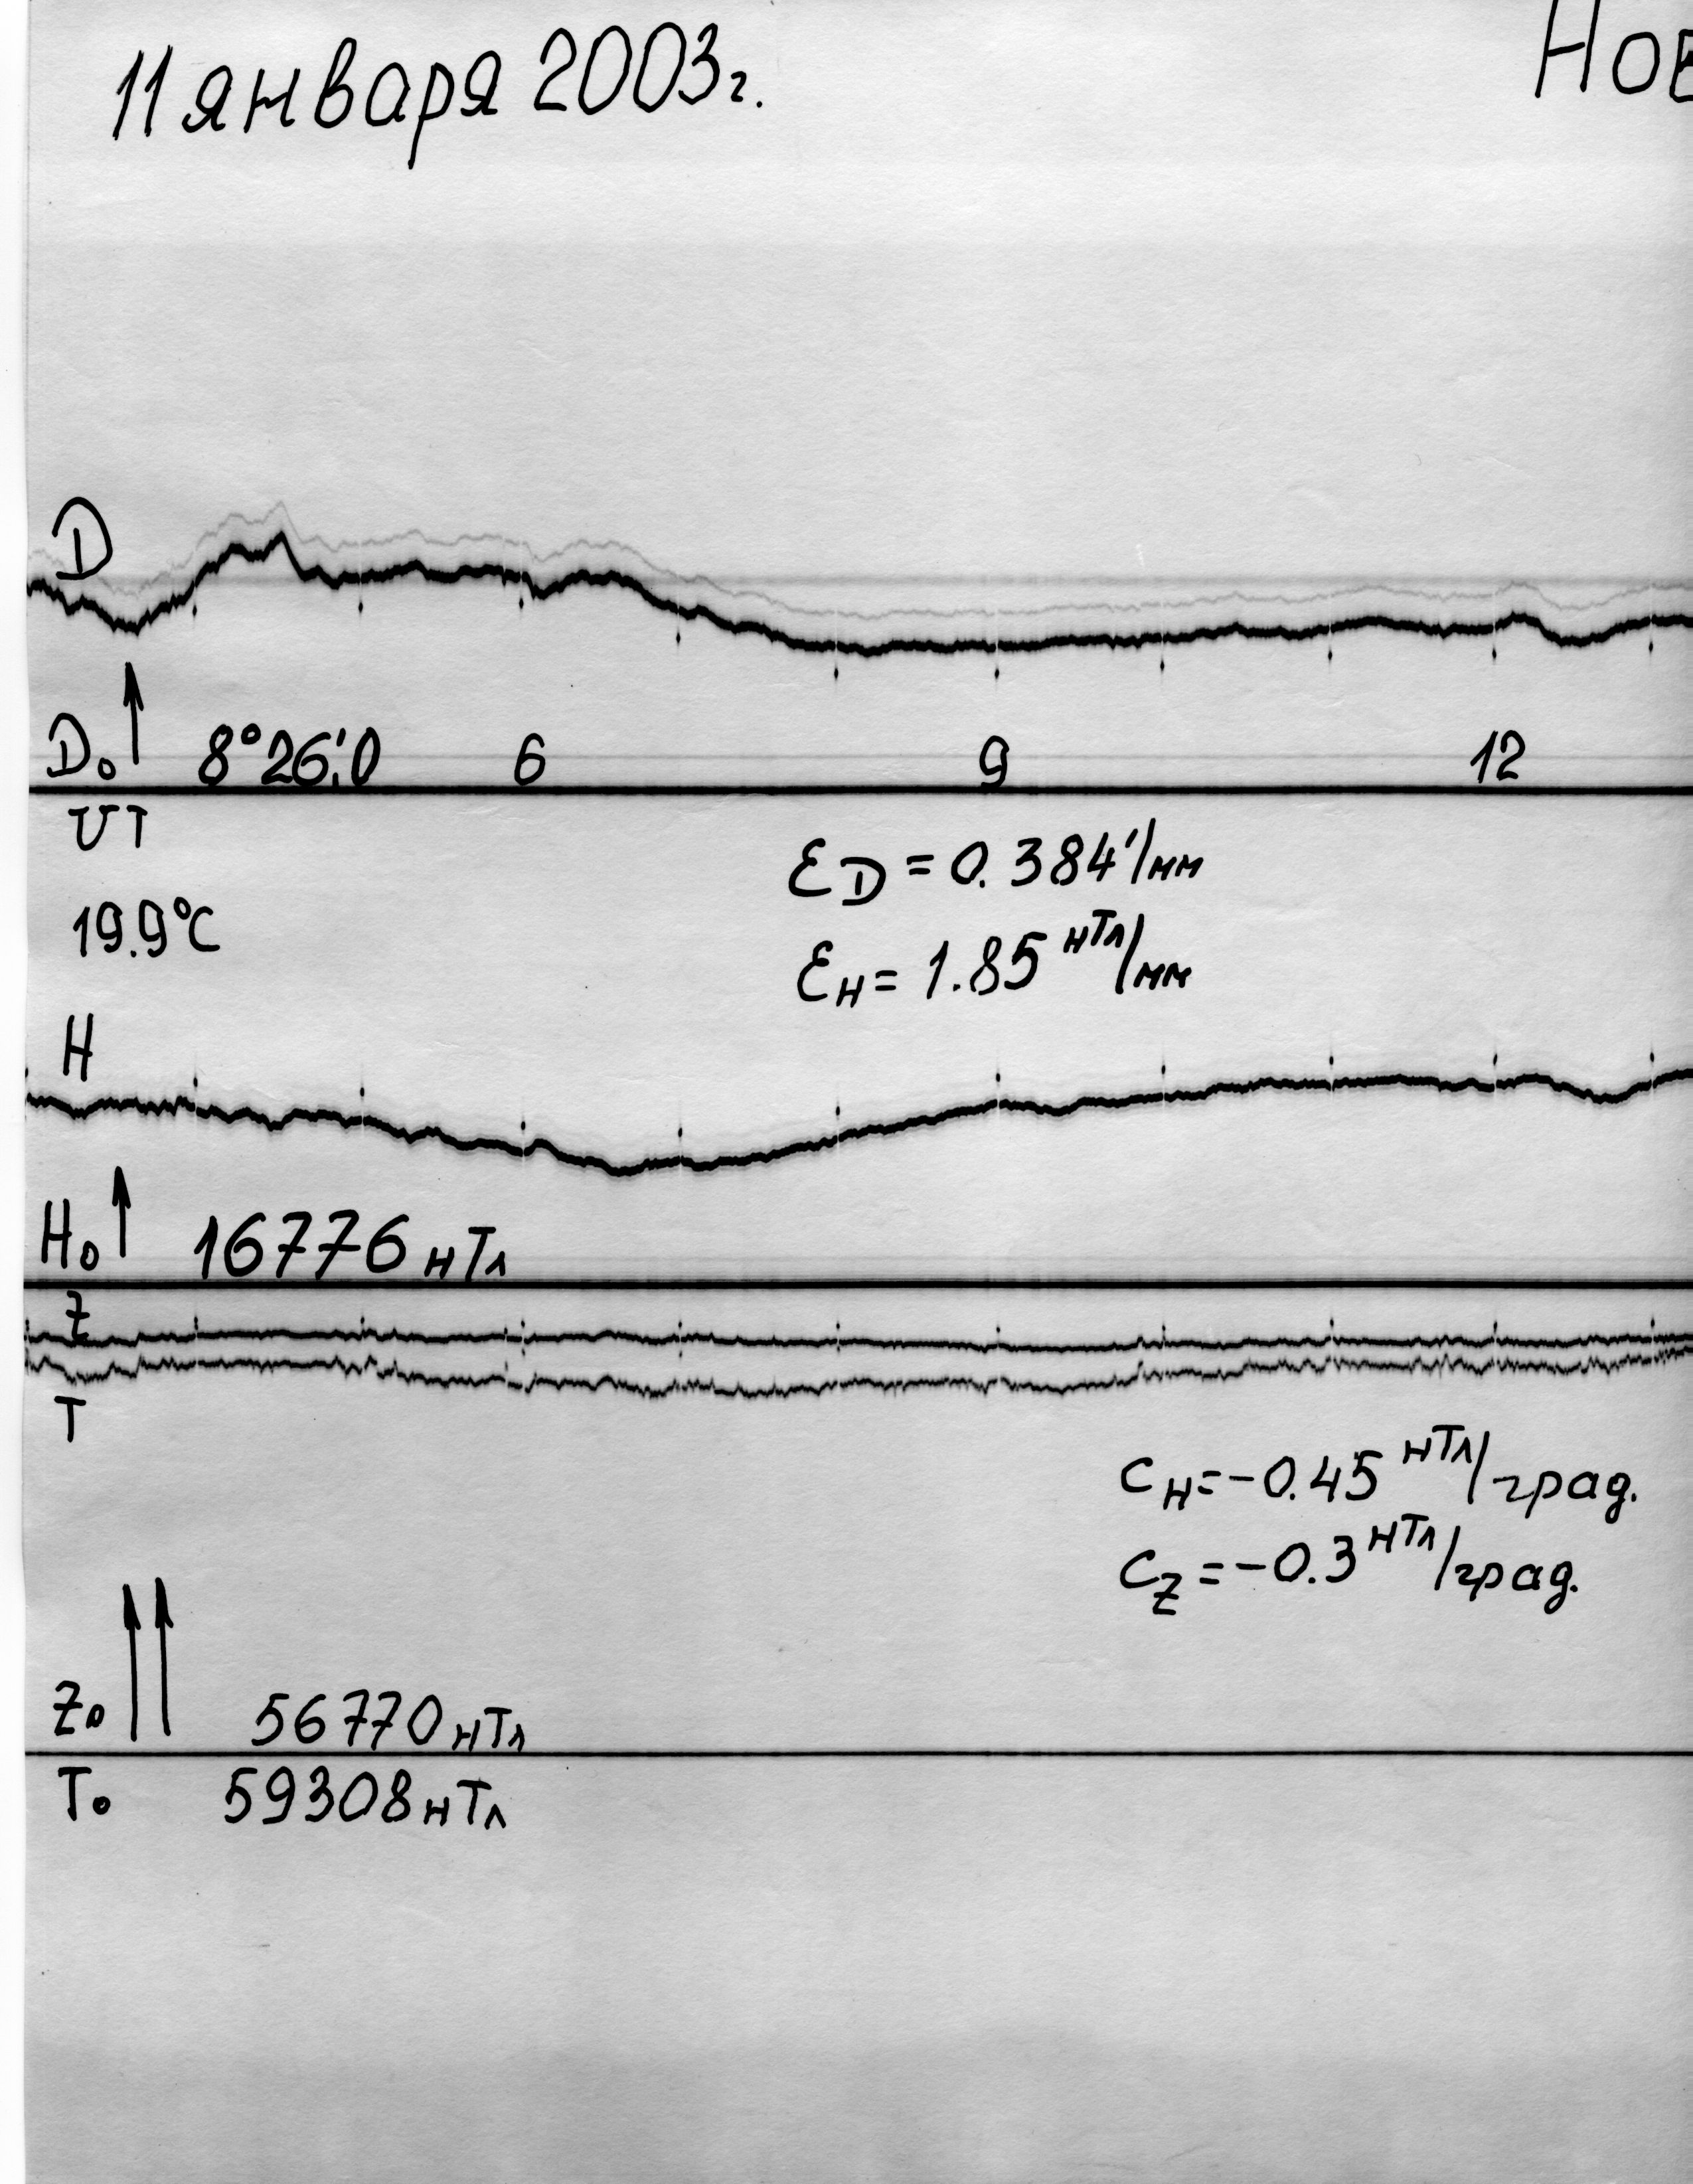 11 января 2003г.
Нов
D
D₀ 8°26'.0 6 9 12
UT
ε_D = 0.384'/мм
19.9°C
ε_H = 1.85 нТл/мм
H
H₀ 16776 нТл
Z
T
c_H = -0.45 нТл/град.
c_Z = -0.3 нТл/град.
Z₀ 56770 нТл
T₀ 59308 нТл